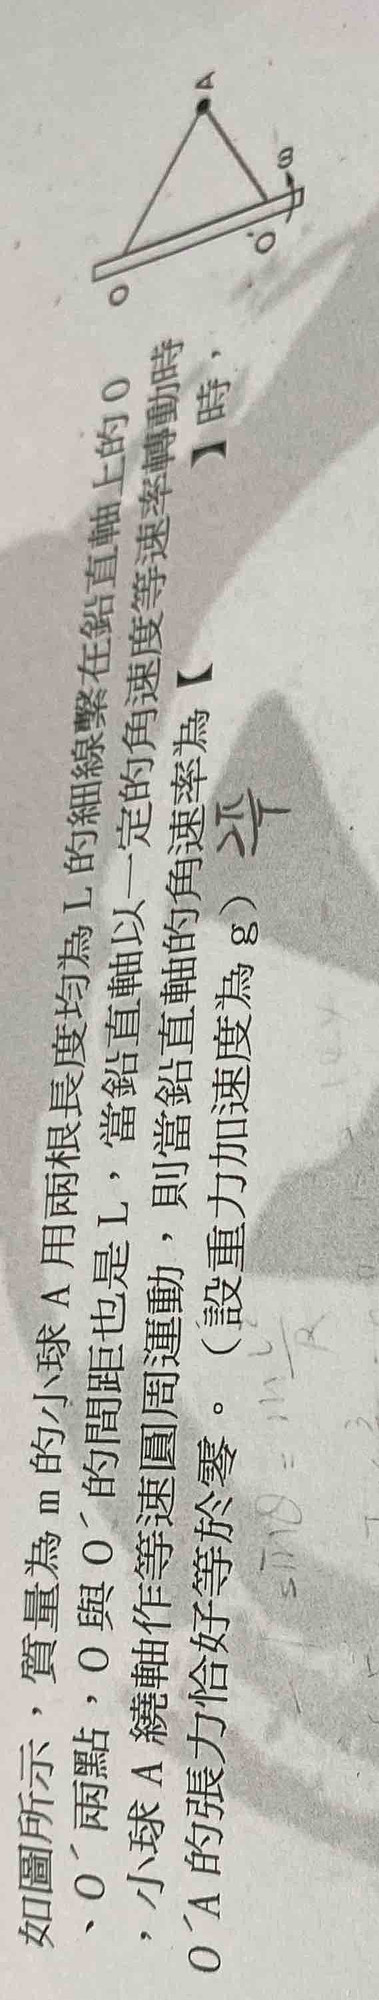 如圖所示，質量為 m 的小球 A 用兩根長度均為 L 的細線繫在鉛直軸上的 O
、O´ 兩點，O 與 O´ 的間距也是 L，當鉛直軸以一定的角速度等速率轉動時
，小球 A 繞軸作等速圓周運動，則當鉛直軸的角速率為【 】時，
O´A 的張力恰好等於零。（設重力加速度為 g）
O
A
O´
ω
2π/T